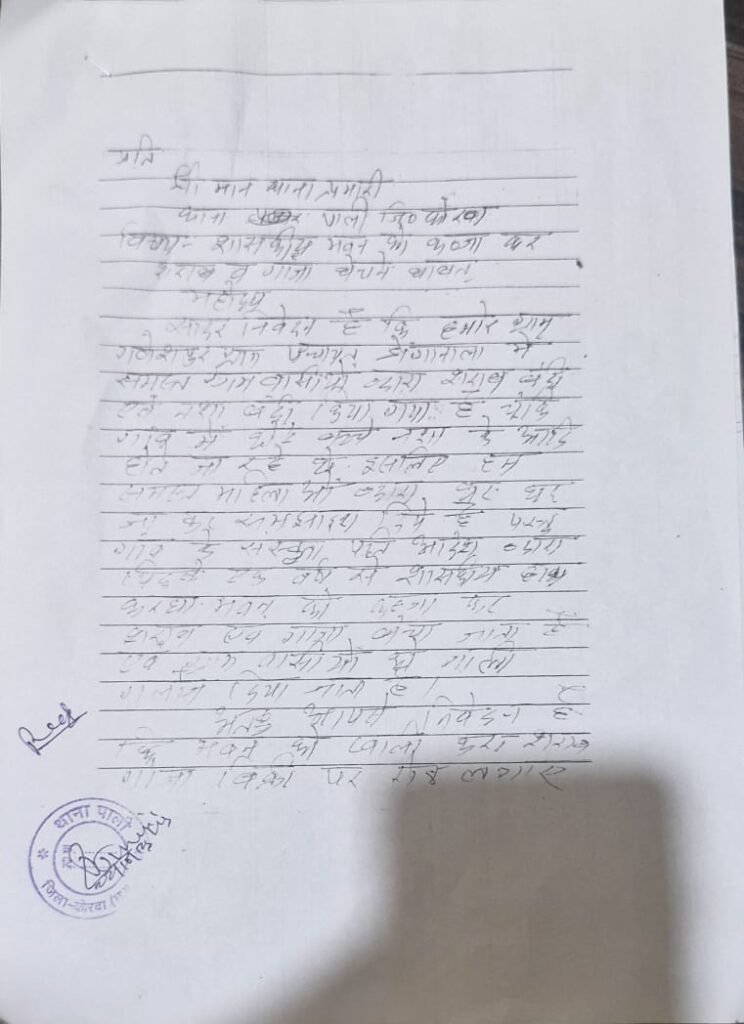 प्रति
श्री मान थाना प्रभारी
थाना पाली जि० कोरबा
विषय- शासकीय भवन को कब्जा कर
शराब व गांजा बेचने बाबत्
महोदय
सादर निवेदन है कि हमारे ग्राम
ग्राम पंचायत में
समस्त ग्राम वासियो द्वारा शराब बंदी
एवं नशा बंदी किया गया है क्योंकि
गांव में छोटे बच्चे नशा के आदि
होते जा रहे थे इसलिए हम
समस्त महिलाओं द्वारा घर घर
जा कर समझाइश दिये है परन्तु
गांव के द्वारा
पिछले एक वर्ष से शासकीय हाथ
करघा भवन को कब्जा कर
शराब एवं गांजा बेचा जाता है
एवं ग्राम वासियों को गाली
गलौज किया जाता है।
अतः आपसे निवेदन है
कि भवन को खाली करा शराब
गांजा बिक्री पर रोक लगाए
Recd
थाना पाली
जिला-कोरबा